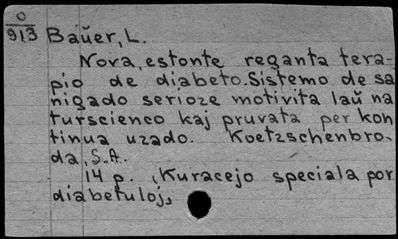 0
913 Baŭer, L.
Nova, estonte reganta tera-
pio de diabeto. Sistemo de sa
nigado serioze motivita laŭ na
turscienco kaj pruvata per kon
tinua uzado. Koetzschenbro-
da, S.A.
14 p. (Kuracejo speciala por
diabetuloj)